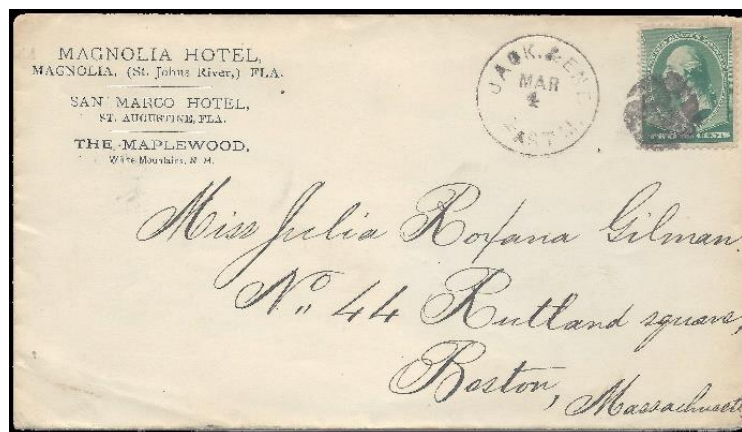 MAGNOLIA HOTEL,
MAGNOLIA, (St. Johns River,) FLA.
SAN MARCO HOTEL,
ST. AUGUSTINE, FLA.
THE MAPLEWOOD,
White Mountains, N. H.
JACK. & ENT.
MAR
4
EAST M.
TWO CENTS
Miss Julia Roxana Gilman.
No. 44 Rutland square,
Boston,
Massachusetts